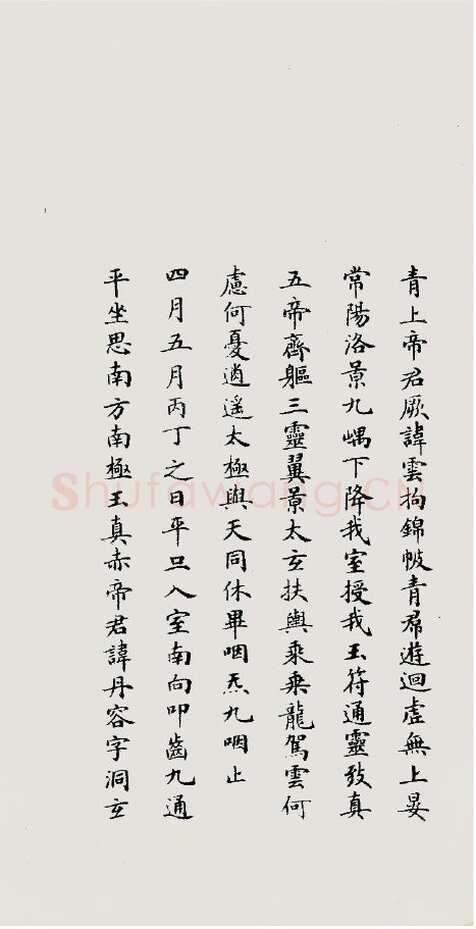 青上帝君厥諱雲拘錦帔青帬遊迴虛無上晏
常陽洛景九嵎下降我室授我玉符通靈致真
五帝齊軀三靈翼景太玄扶輿乘乗龍駕雲何
慮何憂逍遥太極與天同休畢咽炁九咽止
四月五月丙丁之日平旦入室南向叩齒九通
平坐思南方南極玉真赤帝君諱丹容字洞玄
Shufawang.CN